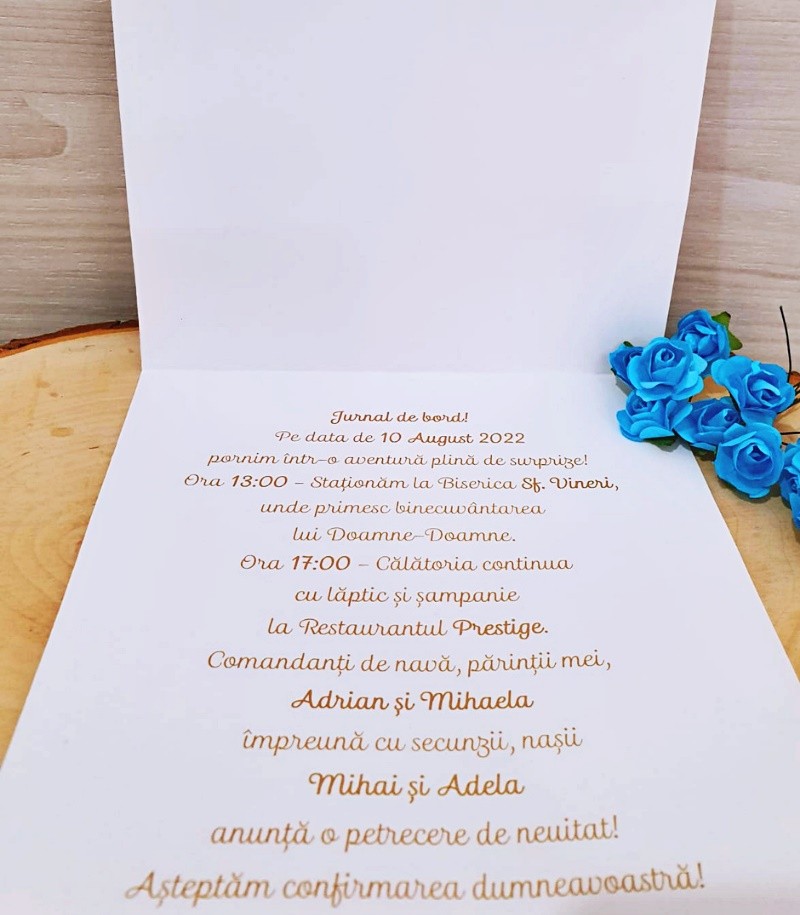 Jurnal de bord!
Pe data de 10 August 2022
pornim într-o aventură plină de surprize!
Ora 13:00 - Staționăm la Biserica Sf. Vineri,
unde primesc binecuvântarea
lui Doamne-Doamne.
Ora 17:00 - Călătoria continua
cu lăptic și șampanie
la Restaurantul Prestige.
Comandanți de navă, părinții mei,
Adrian și Mihaela
împreună cu secunzii, nașii
Mihai și Adela
anunță o petrecere de neuitat!
Așteptăm confirmarea dumneavoastră!